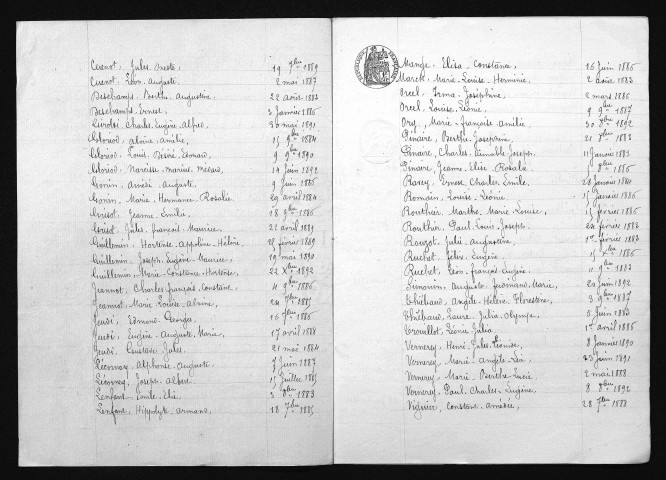 Cuenot, Jules Oreste, 19 9bre 1889
Cuenot, Léon Auguste, 2 mai 1887
Deschamps, Berthe Augustine, 22 août 1883
Deschamps, Ernest, 3 Janvier 1886
Charles Eugène Alfred, 30 mai 1891
Aloïse Amélie, 15 9bre 1884
Louis Désiré Léonard, 9 9bre 1890
Narcisse Marius Médard, 14 Juin 1892
Gonin, Amédé Auguste, 9 Juin 1886
Gonin, Marie Hermance Rosalie, 29 avril 1884
Grisot, Jeanne Emilie, 18 9bre 1886
Grisot, Jules François Maurice, 21 avril 1889
Guillemin, Hortense Appoline Hélène, 28 février 1889
Guillemin, Joseph Eugène Maurice, 19 mai 1890
Guillemin, Marie Constance Hortense, 22 Xbre 1892
Jeannot, Charles François Constant, 4 9bre 1886
Jeannot, Marie Louise Alvine, 24 7bre 1885
Jeudi, Edmond Georges, 16 7bre 1886
Jeudi, Eugène Auguste Marie, 17 avril 1888
Jeudi, Gustave Jules, 21 mai 1884
Alphonse Auguste, 7 Juin 1887
Joseph Albert, 15 Juillet 1885
Lenfant, Emile Elie, 3 1883
Lenfant, Hippolyte Armand, 18 7bre 1885
Mange, Elisa Constance, 26 Juin 1886
Marck, Marie Louise Herminie, 2 août 1883
Orcel, Irma Joséphine, 2 mars 1886
Orcel, Louise Léonie, 9 9bre 1887
Ory, Marie Françoise Amélie, 30 8bre 1892
Pinaire, Berthe Joséphine, 21 7bre 1883
Pinaire, Charles Aimable Joseph, 11 Janvier 1883
Pinaire, Jeanne Elise Rosalie, 1er 8bre 1886
Ernest Charles Emile, 28 Janvier 1884
Romain, Louise Léonie, 15 Janvier 1886
Routhier, Marthe Marie Louise, 15 février 1886
Routhier, Paul Louis Joseph, 22 février 1883
Julie Augustine, 1er février 1883
Ruchet, Félix Eugène, 15 Xbre 1886
Ruchet, Léon François Eugène, 11 9bre 1883
Simonin, Auguste Fernand Marie, 20 Juin 1892
Thiébaud, Angèle Hélène Florestine, 3 9bre 1887
Thiébaud, Laure Julia Olympe, 5 Juin 1883
Trouillot, Léonie Julia, 1er avril 1886
Vernerey, Henri Jules Léonide, 8 Janvier 1890
Vernerey, Marie Angèle Léa, 23 Juin 1891
Vernerey, Marie Berthe Lucie, 2 mai 1888
Vernerey, Paul Charles Eugène, 8 8bre 1892
Viguier, Constant Amédée, 28 7bre 1888